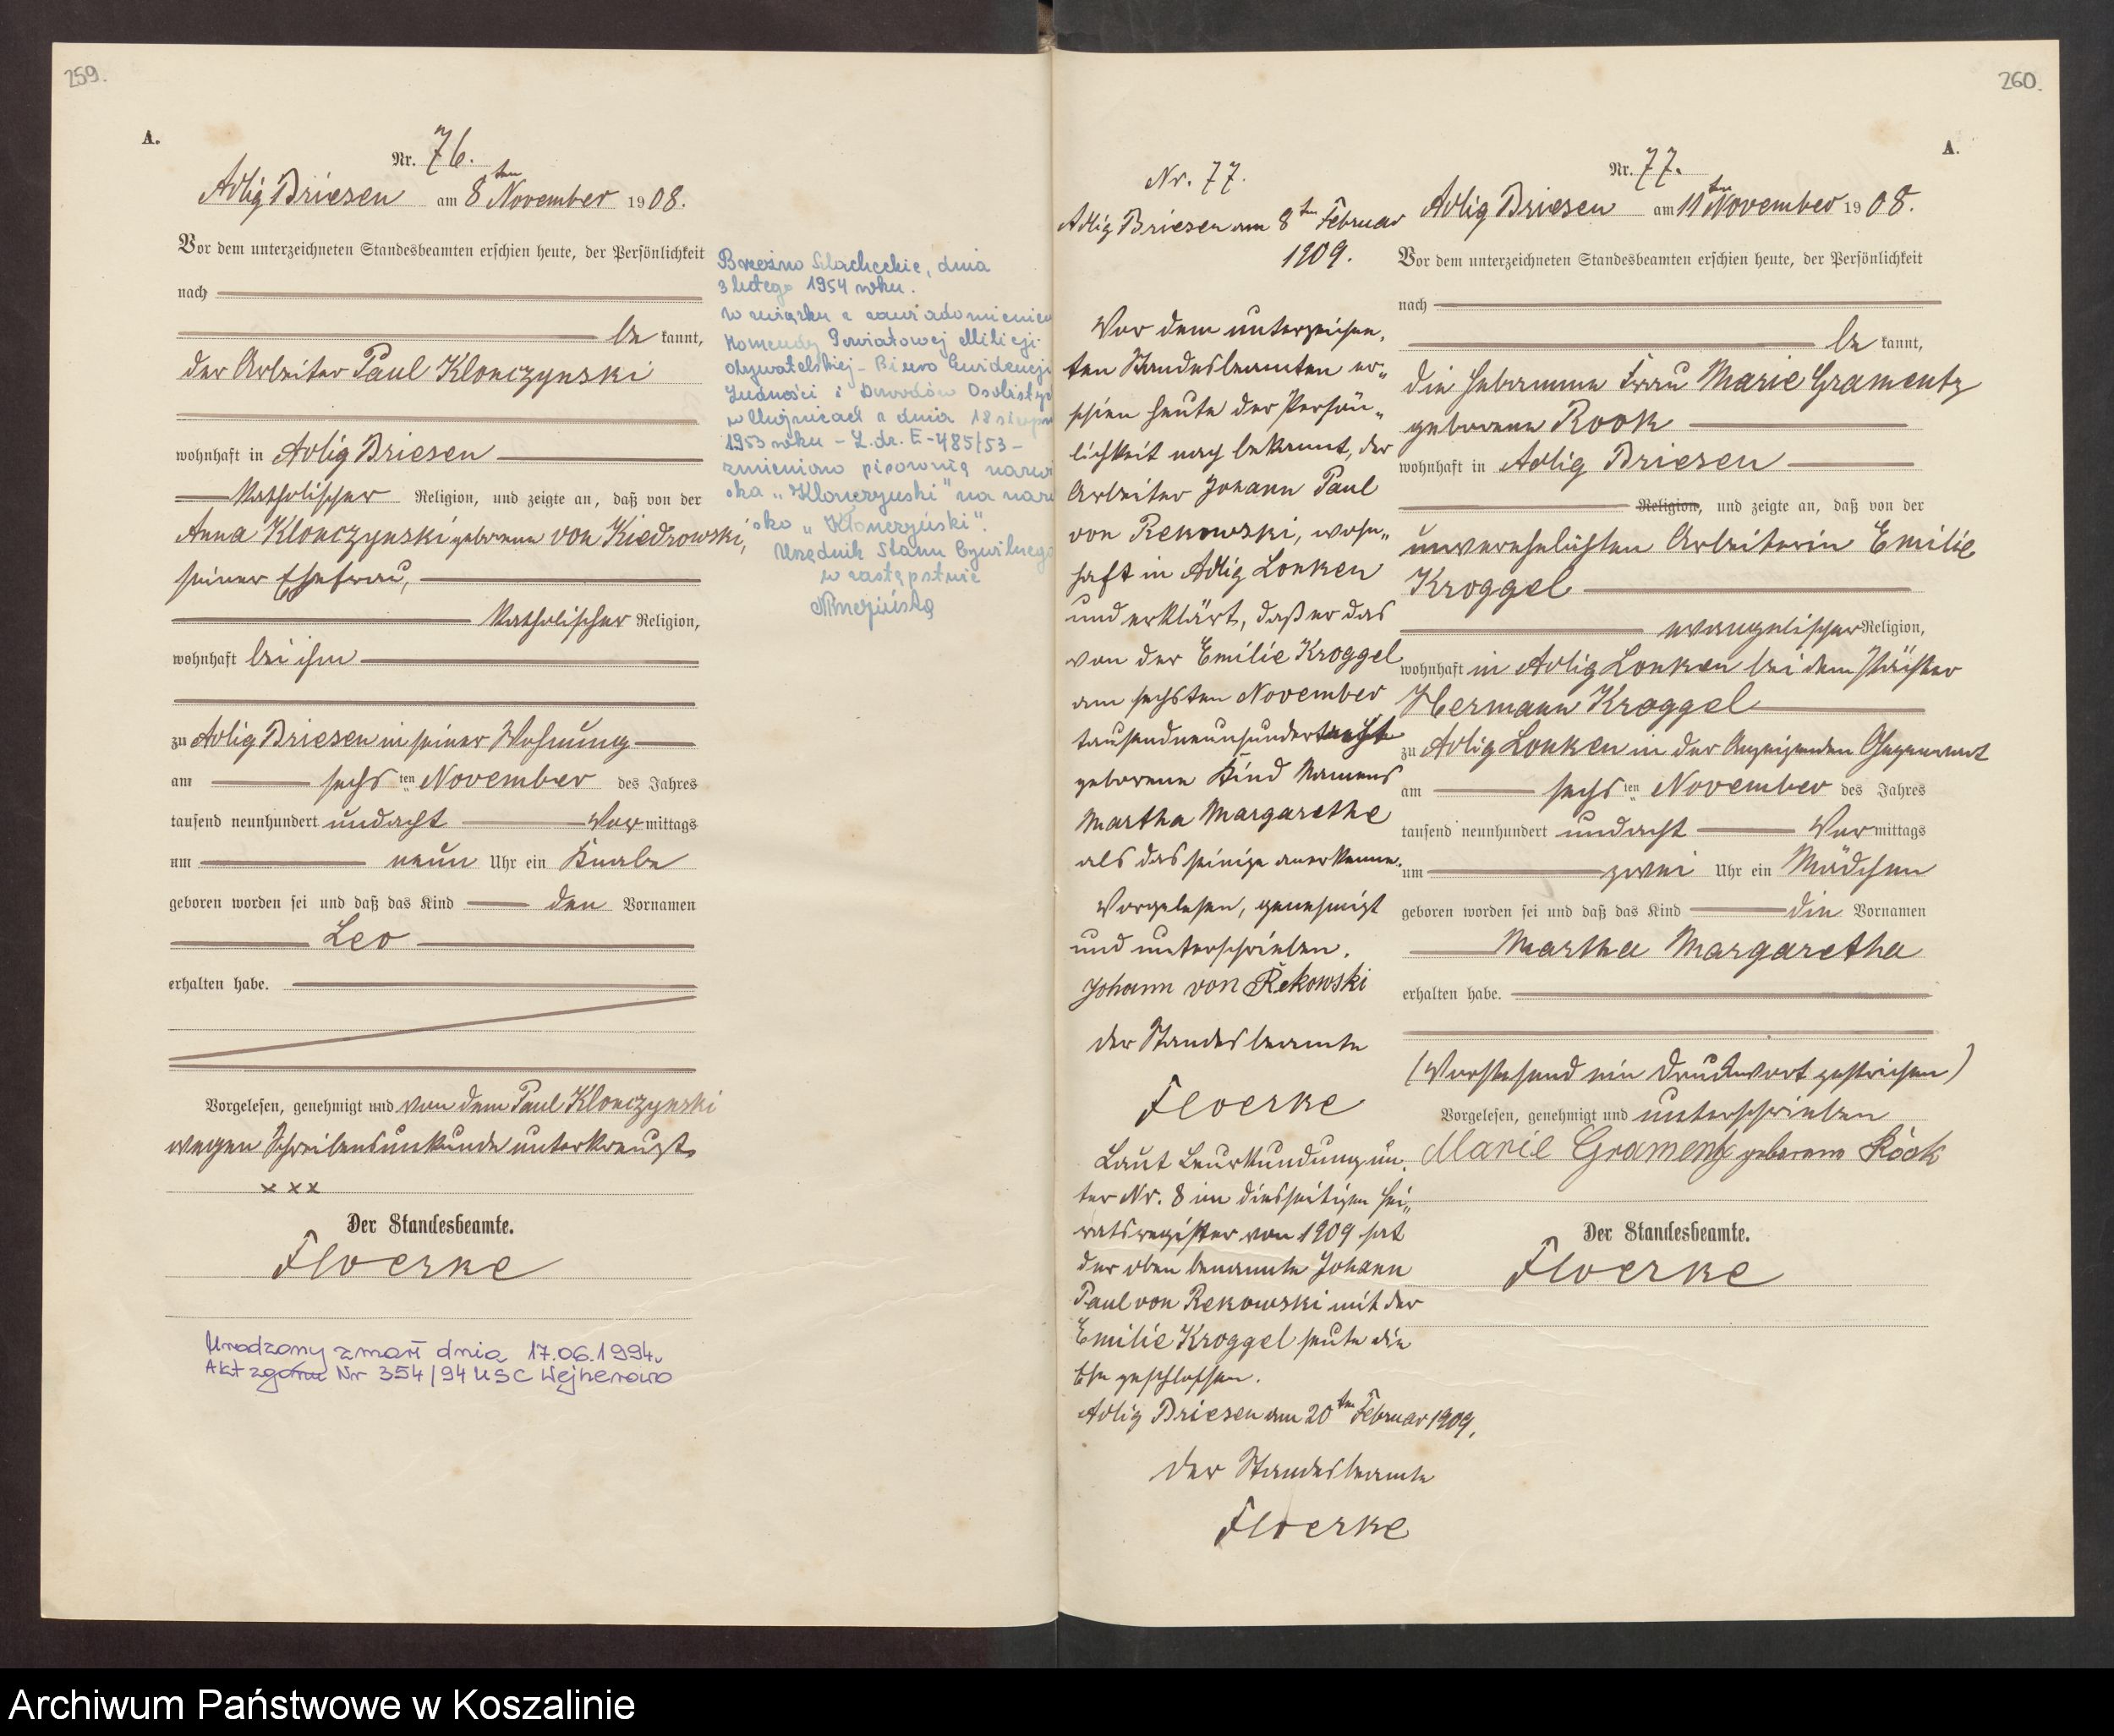 259.
A.
Nr. 76.
Adlig Briesen am 8ten November 1908.
Vor dem unterzeichneten Standesbeamten erschien heute, der Persönlichkeit
nach
bekannt,
der Arbeiter Paul Klonczynski
wohnhaft in Adlig Briesen
katholischer Religion, und zeigte an, daß von der
Anna Klonczynski geborene von Kiedrowski,
seiner Ehefrau,
katholischer Religion,
wohnhaft bei ihm
zu Adlig Briesen in seiner Wohnung
am sechsten November des Jahres
tausend neunhundert undacht Vormittags
um neun Uhr ein Knabe
geboren worden sei und daß das Kind den Vornamen
Leo
erhalten habe.
Vorgelesen, genehmigt und von dem Paul Klonczynski
wegen Schreibensunkunde unterkreuzt
x x x
Der Standesbeamte.
Floerke
Urodzony zmarł dnia 17.06.1994.
Akt zgonu Nr 354/94 USC Wejherowo
Brzeźno Szlacheckie, dnia
3 lutego 1954 roku.
W związku z zawiadomieniem
Komendy Powiatowej Milicji
Obywatelskiej - Biuro Ewidencji
Ludności i Dowodów Osobistych
w Chojnicach z dnia 18 sierpnia
1953 roku - L.dz. E-485/53 -
zmieniono pisownię nazwi
ska "Klonczynski" na nazwi
sko "Klonczyński".
Urzędnik Stanu Cywilnego
w zastępstwie
260.
A.
Nr. 77.
Adlig Briesen am 8ten Februar
1909.
Vor dem unterzeichne-
ten Standesbeamten er-
schien heute der Persön-
lichkeit nach bekannt, der
Arbeiter Johann Paul
von Rekowski, wohn-
haft in Adlig Lonken
und erklärt, daß er das
von der Emilie Kroggel
am sechsten November
tausendneunhundertacht
geborene Kind Namens
Martha Margarethe
als das seinige anerkenne.
Vorgelesen, genehmigt
und unterschrieben.
Johann von Rekowski
Der Standesbeamte
Floerke
Laut Beurkundung un-
ter Nr. 8 im diesseitigen Hei-
ratsregister von 1909 hat
der oben benannte Johann
Paul von Rekowski mit der
Emilie Kroggel heute die
Ehe geschlossen.
Adlig Briesen am 20ten Februar 1909.
Der Standesbeamte
Floerke
Nr. 77.
Adlig Briesen am 11ten November 1908.
Vor dem unterzeichneten Standesbeamten erschien heute, der Persönlichkeit
nach
bekannt,
die Hebamme Frau Marie Gramentz
geborene Rook
wohnhaft in Adlig Briesen
Religion, und zeigte an, daß von der
unverehelichten Arbeiterin Emilie
Kroggel
evangelischer Religion,
wohnhaft in Adlig Lonken bei dem Pächter
Hermann Kroggel
zu Adlig Lonken in der Anzeigenden Gegenwart
am sechsten November des Jahres
tausend neunhundert undacht Vormittags
um zwei Uhr ein Mädchen
geboren worden sei und daß das Kind die Vornamen
Martha Margaretha
erhalten habe.
(Vorstehend ein Druckwort gestrichen)
Vorgelesen, genehmigt und unterschrieben
Marie Gramentz geborene Rook
Der Standesbeamte.
Floerke
Archiwum Państwowe w Koszalinie